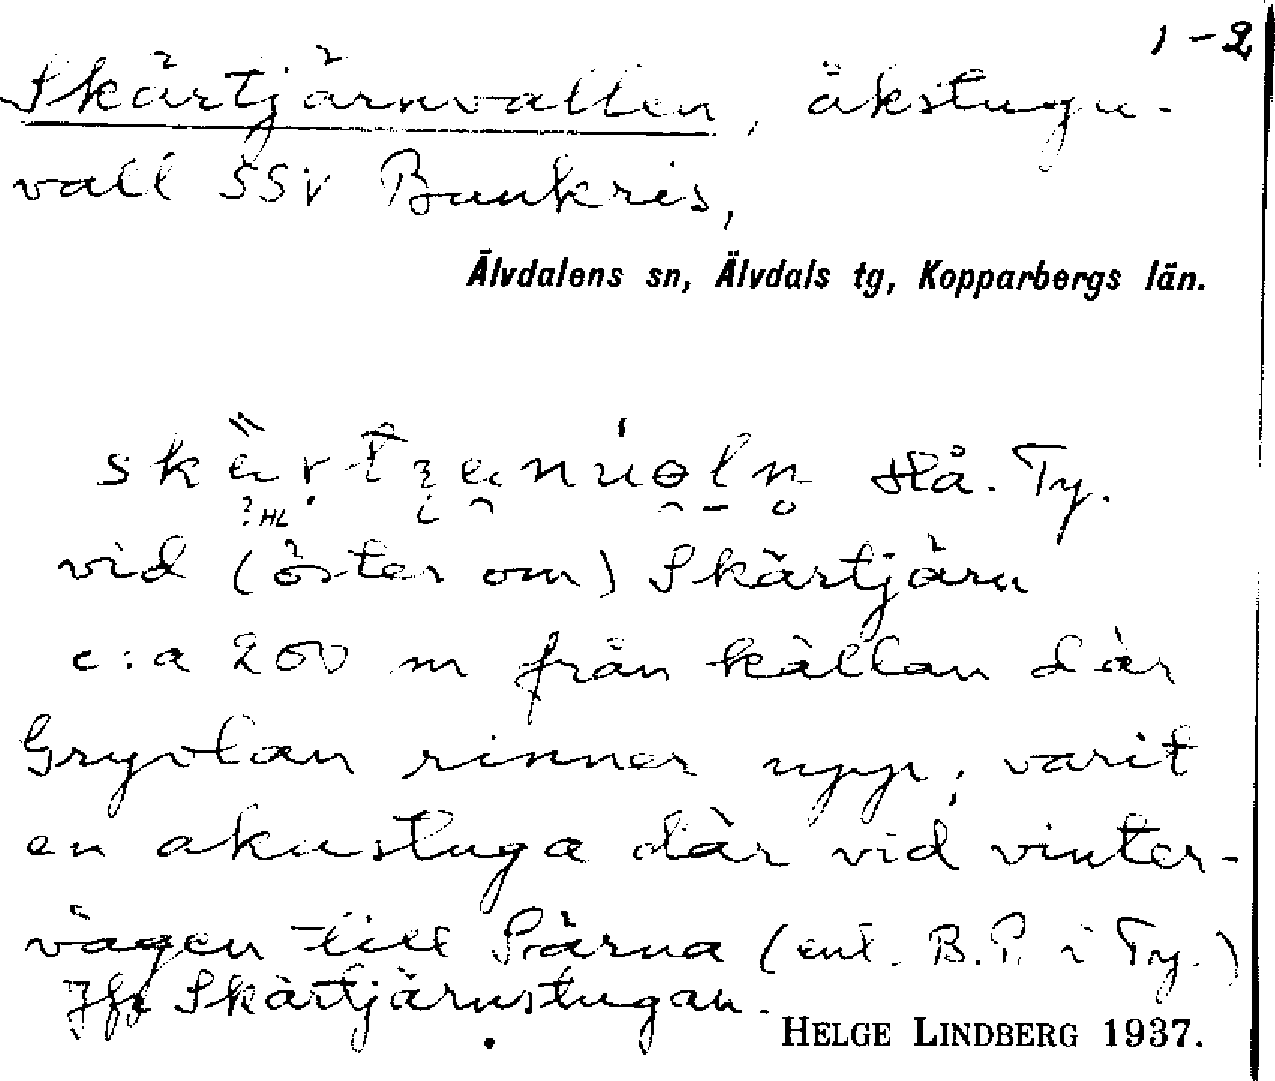 1-2
Skärtjärnvallen, åkstugu-
vall SSV Bunkris,
Älvdalens sn, Älvdals tg, Kopparbergs län.
Hå. Ty.
?HL
vid (öster om) Skärtjärn
c:a 200 m från källan där
Gryvlan rinner upp; varit
en akustuga där vid vinter-
vägen till Särna (enl. B.P. i Ty.)
Jfr Skärtjärnstugan.
HELGE LINDBERG 1937.